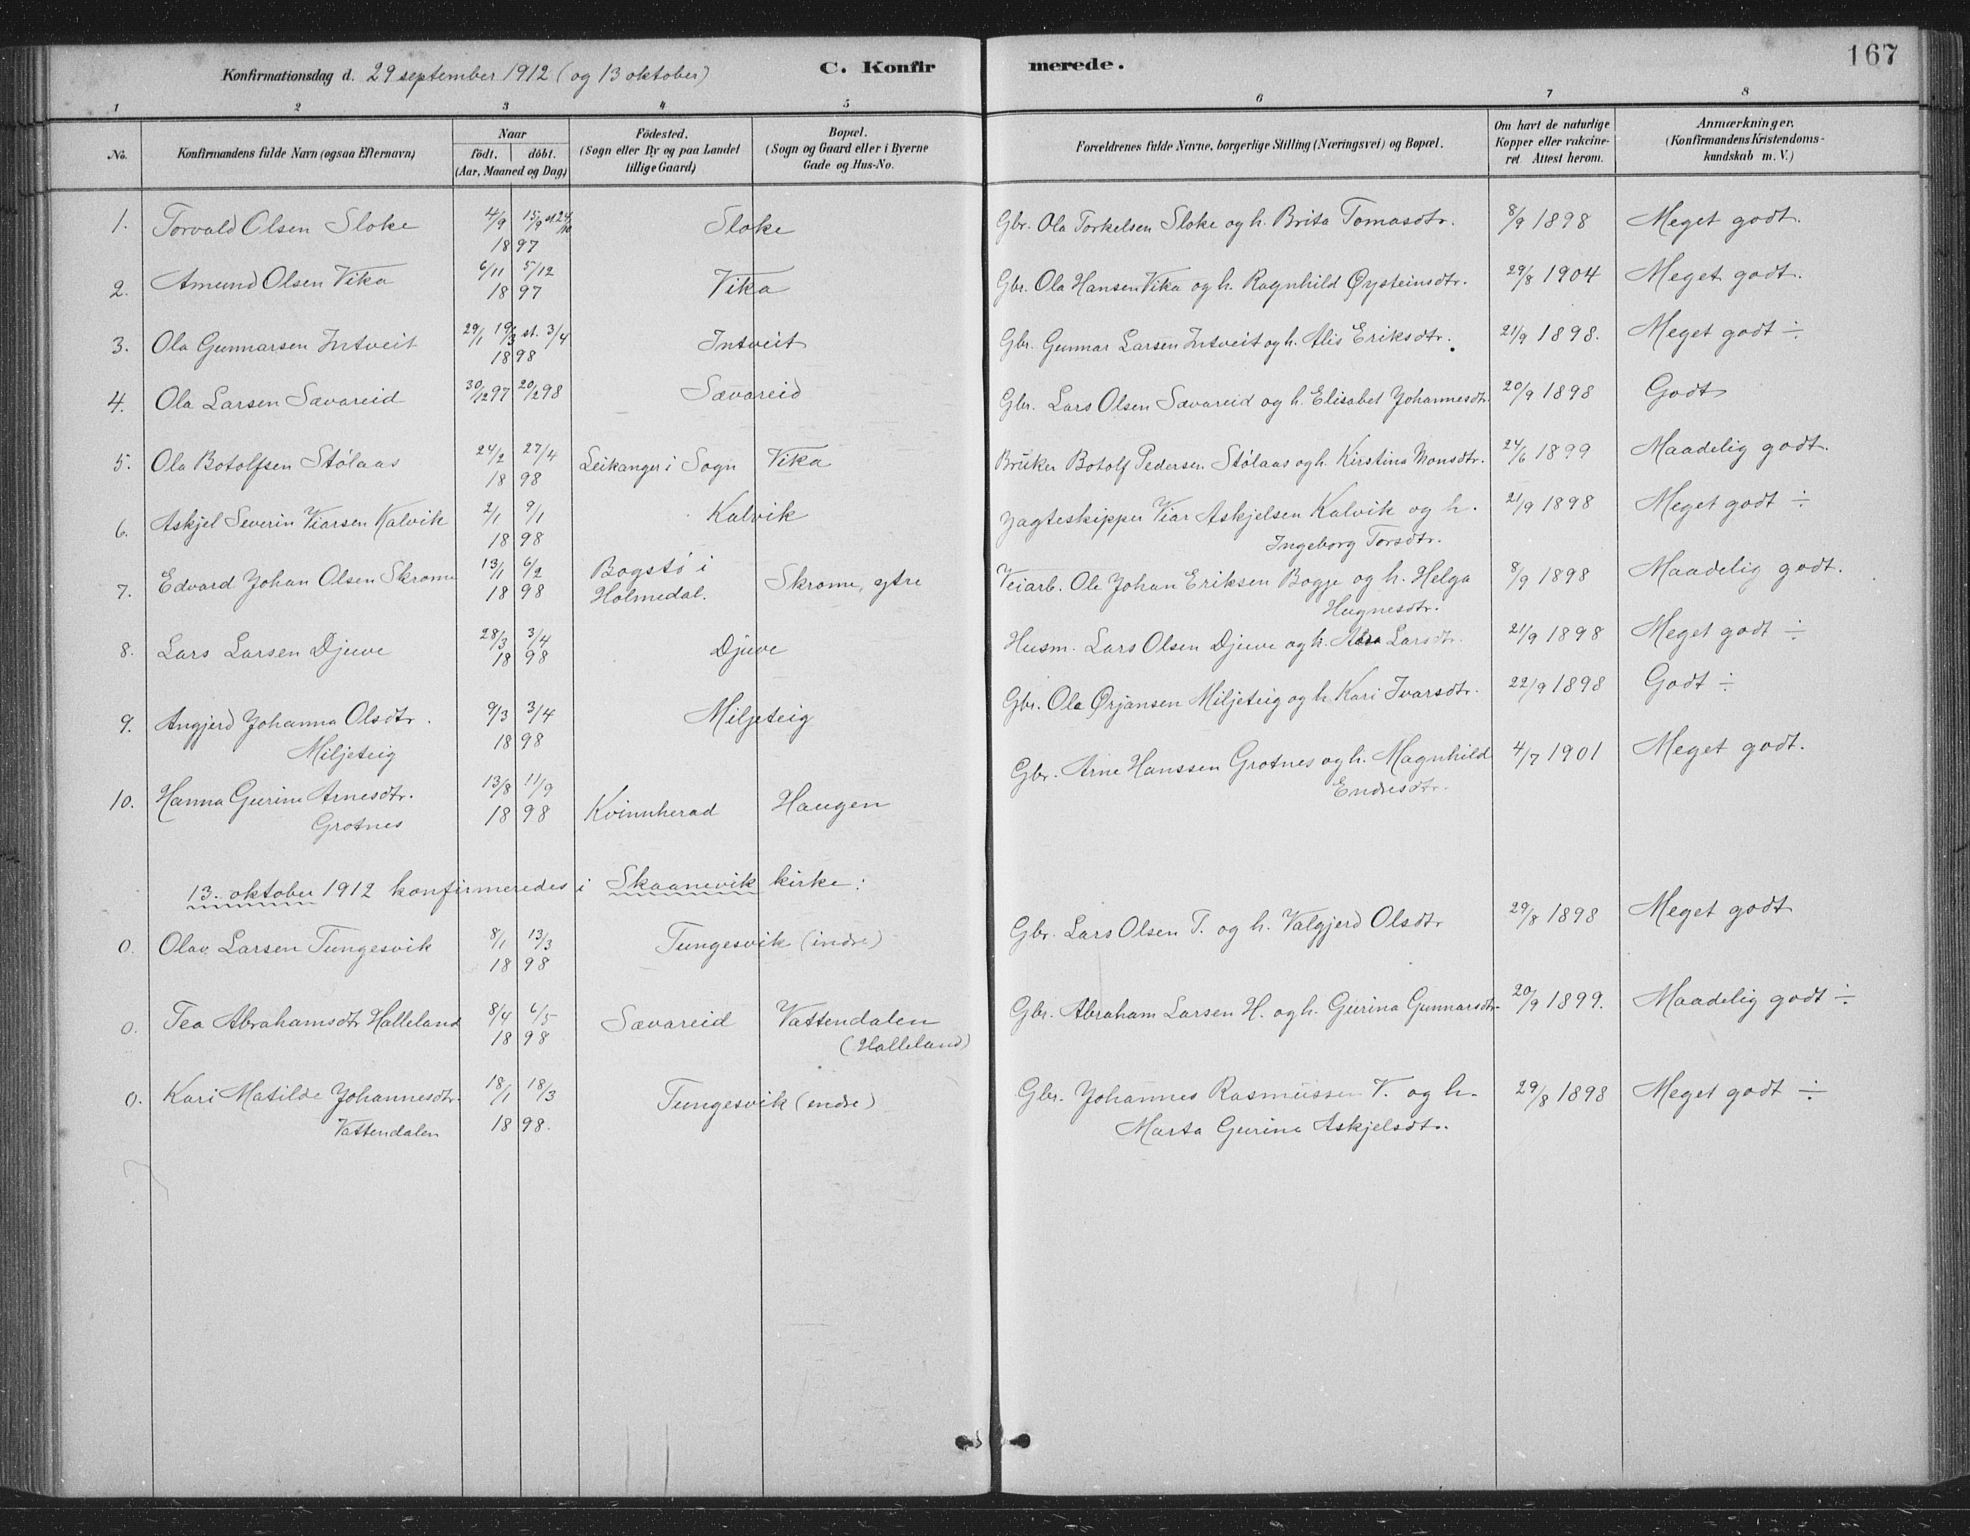 Konfirmationsdag d. 29 september 1912 (og 13 oktober) C. Konfirmerede. 167
1 2 3 4 5 6 7 8
No. Konfirmandens fulde Navn (ogsaa Efternavn) Naar födt. döbt. (Aar, Maaned og Dag) Födested. (Sogn eller By og paa Landet tillige Gaard) Bopæl. (Sogn og Gaard eller i Byerne Gade og Hus-No. Forældrenes fulde Navne, borgerlige Stilling (Næringsvei) og Bopæl. Om havt de naturlige Kopper eller vakcineret. Attest herom. Anmærkninger. (Konfirmandens Kristendomskundskab m. V.)
1. Torvald Olsen Sloke 4/9 15/9 st. 24/10 1897 Sloke Gbr. Ola Torkelsen Sloke og h. Brita Tomasdtr. 8/9 1898 Meget godt.
2. Amund Olsen Vika 6/11 5/12 1897 Vika Gbr. Ola Hansen Vika og h. Ragnhild Øysteinsdtr. 29/8 1904 Meget godt.
3. Ola Gunnarsen Intveit 29/1 19/3 st. 3/4 1898 Intveit Gbr. Gunnar Larsen Intveit og h. Alis Eriksdtr. 21/9 1898. Meget godt ÷
4. Ola Larsen Sævareid 30/12 97 20/2 98 Sævareid Gbr. Lars Olsen Sævareid og h. Elisabet Johannesdtr. 20/9 1898 Godt
5. Ola Botolfsen Stølaas 24/2 27/4 1898 Leikanger i Sogn Vika Bruker Botolf Pedersen Stølaas og h. Kirstina Monsdtr. 24/6 1899 Maadelig godt.
6. Askjel Severin Viarsen Kalvik 2/1 9/1 1898 Kalvik Jagteskipper Viar Askjelsen Kalvik og h. 21/9 1898 Meget godt ÷
Ingeborg Torsdtr.
7. Edvard Johan Olsen Skrome 13/1 6/2 1898 Bogstø i Holmedal. Skrome, ytre Veiarb. Ole Johan Eriksen Bogje og h. Helga 8/9 1898 Maadelig godt.
Hugnesdtr.
8. Lars Larsen Djuve 28/3 3/4 1898 Djuve Husm. Lars Olsen Djuve og h. Larsdtr. 21/9 1898 Meget godt ÷
9. Angjerd Johanna Olsdtr. 9/3 3/4 1898 Miljeteig Gbr. Ola Ørjansen Miljeteig og h. Kari Ivarsdtr. 22/9 1898 Godt ÷
Miljeteig
10. Hanna Gurine Arnesdtr. 13/8 11/9 1898 Kvinnherad Haugen Gbr. Arne Hanssen Grotnes og h. Magnhild 4/7 1901 Meget godt.
Grotnes Endresdtr.
13. oktober 1912 konfirmeredes i Skaanevik kirke:
0. Olav Larsen Tungesvik 8/1 13/3 1898 Tungesvik (indre) Gbr. Lars Olsen T. og h. Valgjerd Olsdtr 29/8 1898 Meget godt
0. Tea Abrahamsdtr Halleland 8/4 6/5 1898 Sævareid Vattendalen Gbr. Abraham Larsen H. og h. Gurina Gunnarsdtr. 20/9 1899. Maadelig godt ÷
(Halleland)
0. Kari Matilde Johannesdtr. 18/1 18/3 1898. Tungesvik (indre) Gbr. Johannes Rasmussen V. og h. 29/8 1898 Meget godt ÷
Vattendalen Marta Gurine Askjelsdtr.